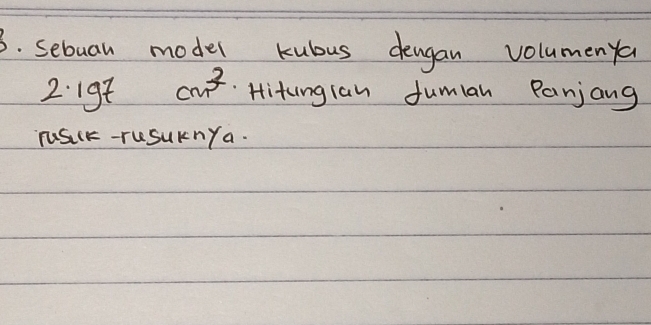 3. Sebuah model kubus dengan volumenya
2.197 cm². Hitunglah Jumlah Panjang
rusuk-rusuknya.